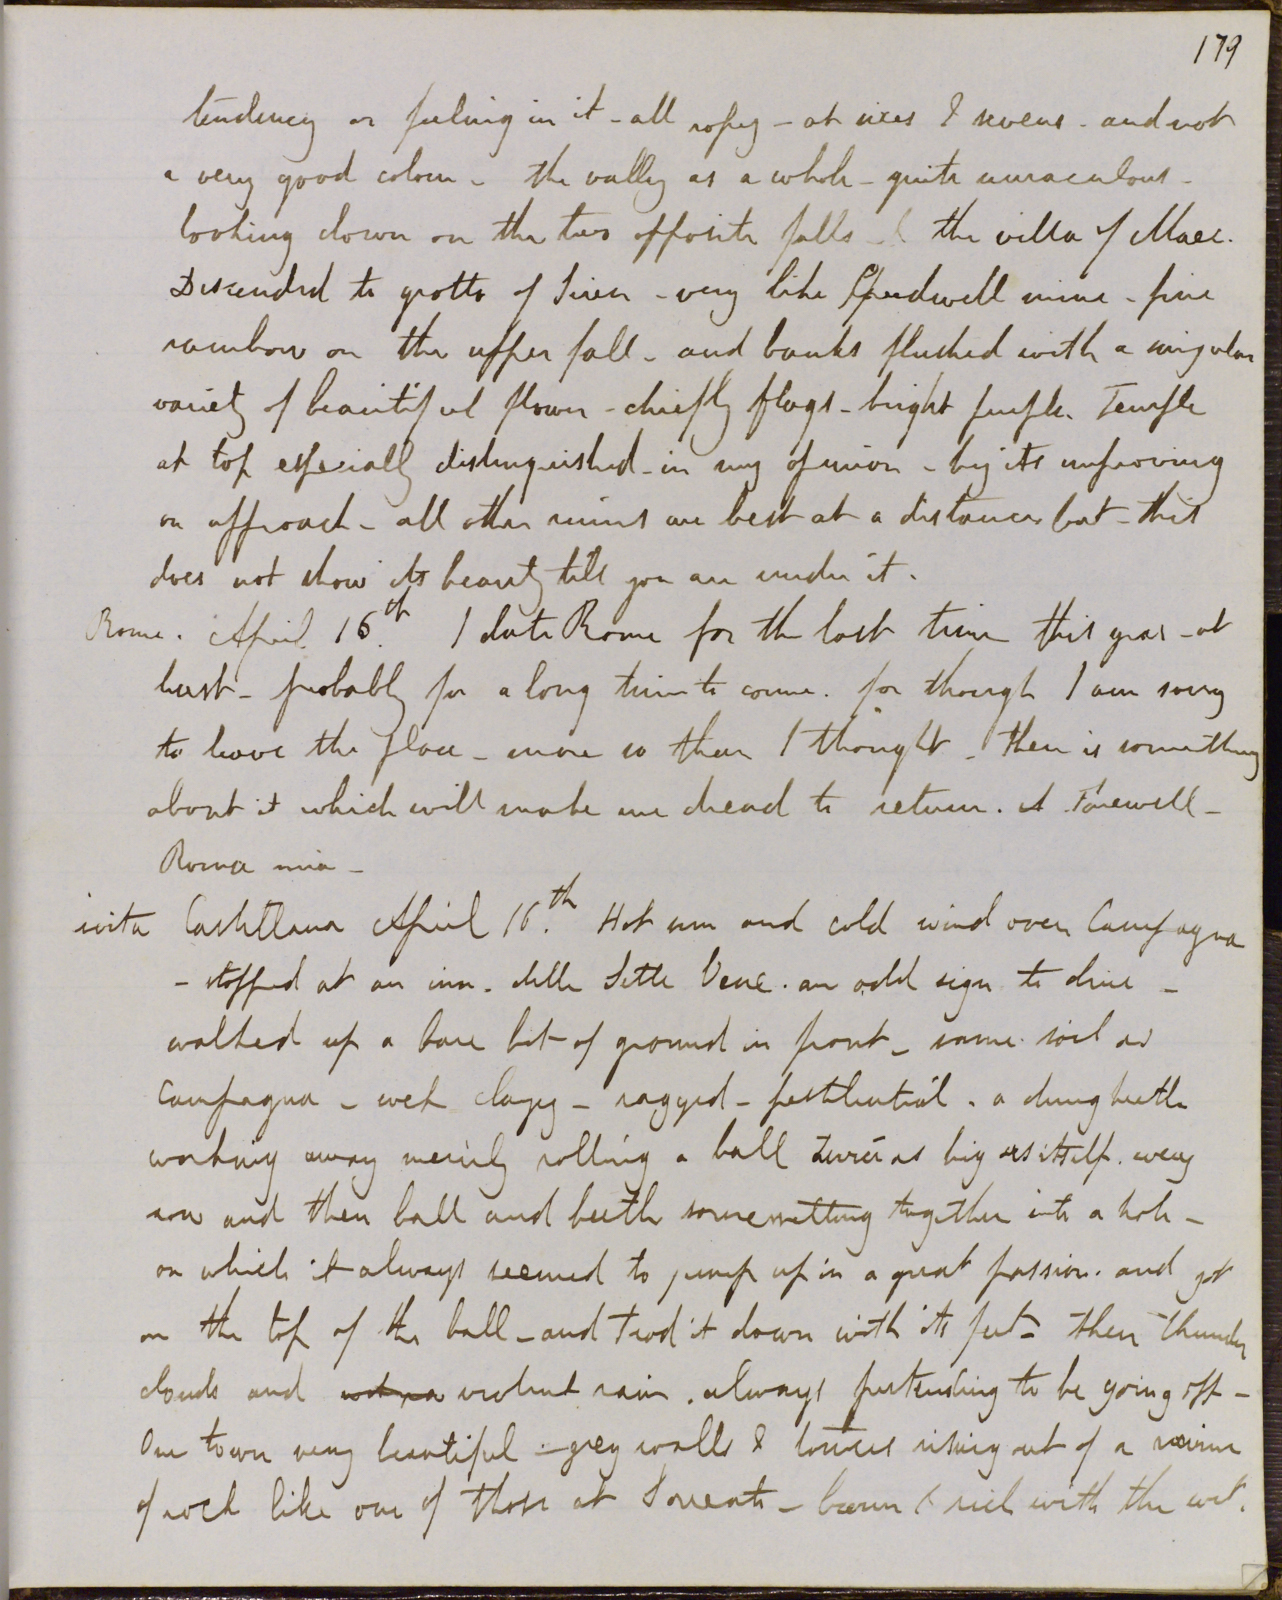 179
tendency or feeling in it - all ropey - at sixes & sevens - and not
a very good colour - the valley as a whole - quite miraculous -
looking down on the two opposite falls - & the villa of Maec.
Descended to grotto of Siren - very like Speedwell mine - fine
rainbow on the upper fall - and banks flushed with a singular
variety of beautiful flower - chiefly flags - bright purple. Temple
at top especially distinguished - in my opinion - by its improving
on approach - all other ruins are best at a distance but - this
does not show its beauty till you are under it.
Rome. April 16th. I date Rome for the last time this year - at
least - probably for a long time to come. for though I am sorry
to leave the place - more so than I thought - there is something
about it which will make me dread to return. A Farewell -
Roma mia -
ivita Castellana April 16th. Hot sun and cold wind over Campagna
- stopped at an inn - delle Sette Vene. an odd sign to dine -
walked up a bare bit of ground in front - same soil as
Campagna - wet clayey - ragged - pestilential. a dung beetle
working away merrily rolling a ball twice as big as itself. every
now and then ball and beetle somersetting together into a hole -
on which it always seemed to jump up in a great passion. and got
on the top of the ball - and trod it down with its feet - then thunder
clouds and violent rain. always pretending to be going off -
One town very beautiful - grey walls & towers rising out of a ravine
of rock like one of those at Sorrento - brown & rich with the wet.